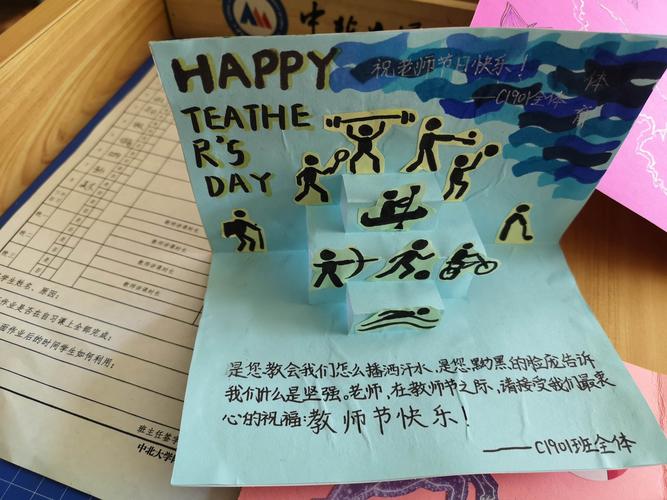 HAPPY
TEATHE
R'S
DAY
祝老师节日快乐！
——C1901全体
体
育
是您教会我们怎么播洒汗水，是您黝黑的脸庞告诉
我们什么是坚强。老师，在教师节之际，请接受我们最衷
心的祝福：教师节快乐！
——C1901班全体
教师讲课时长
教师讲课时长
教师讲课时长
学生姓名、原因：
作业是否在自习课上全部完成：
作业后的时间学生如何利用：
班主任签字
中北大学
中北